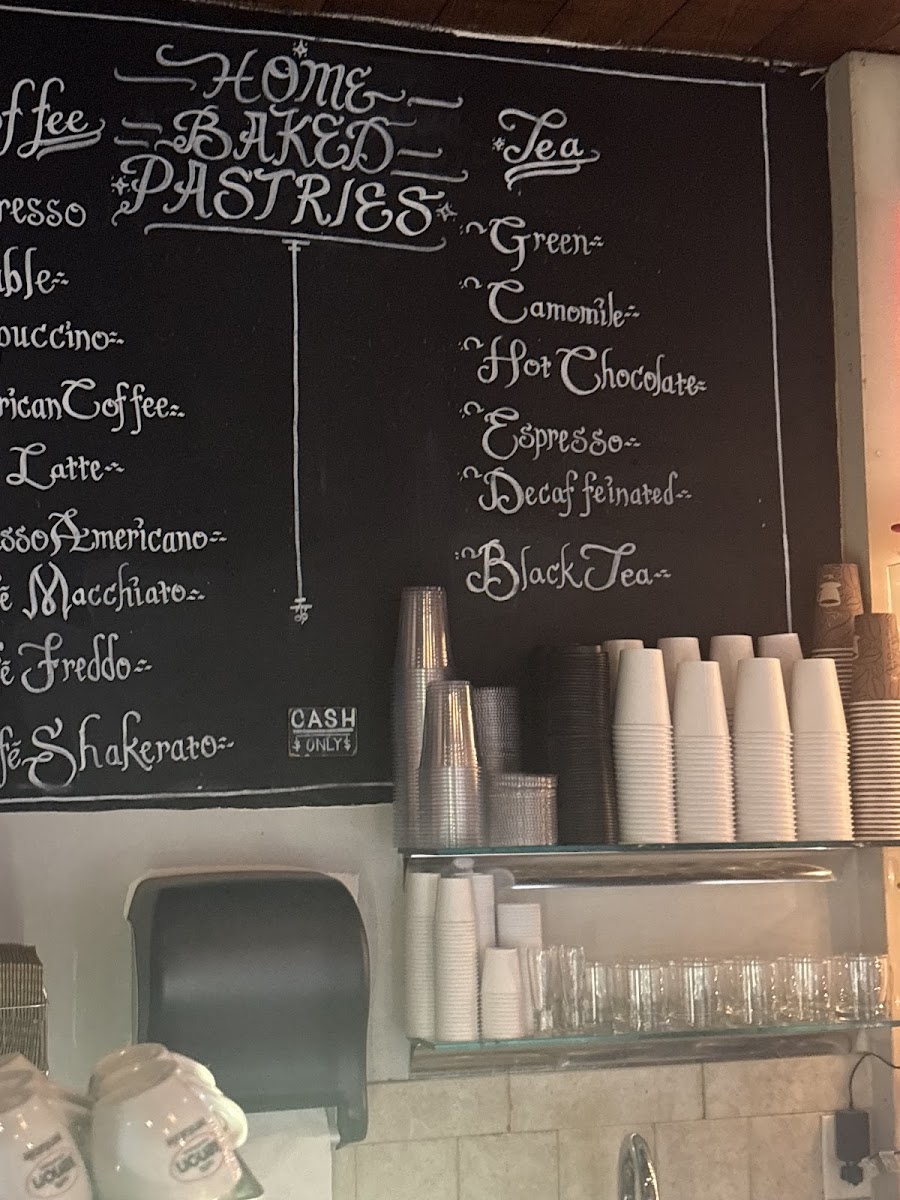 ffee
resso
ble
puccino
rican Coffee
Latte
sso Americano
é Macchiato
é Freddo
fé Shakerato
HOME
BAKED
PASTRIES
CASH
$ ONLY $
Tea
Green
Camomile
Hot Chocolate
Espresso
Decaffeinated
Black Tea